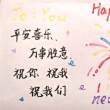 To You
平安喜乐、
万事胜意
祝你、祝我
祝我们